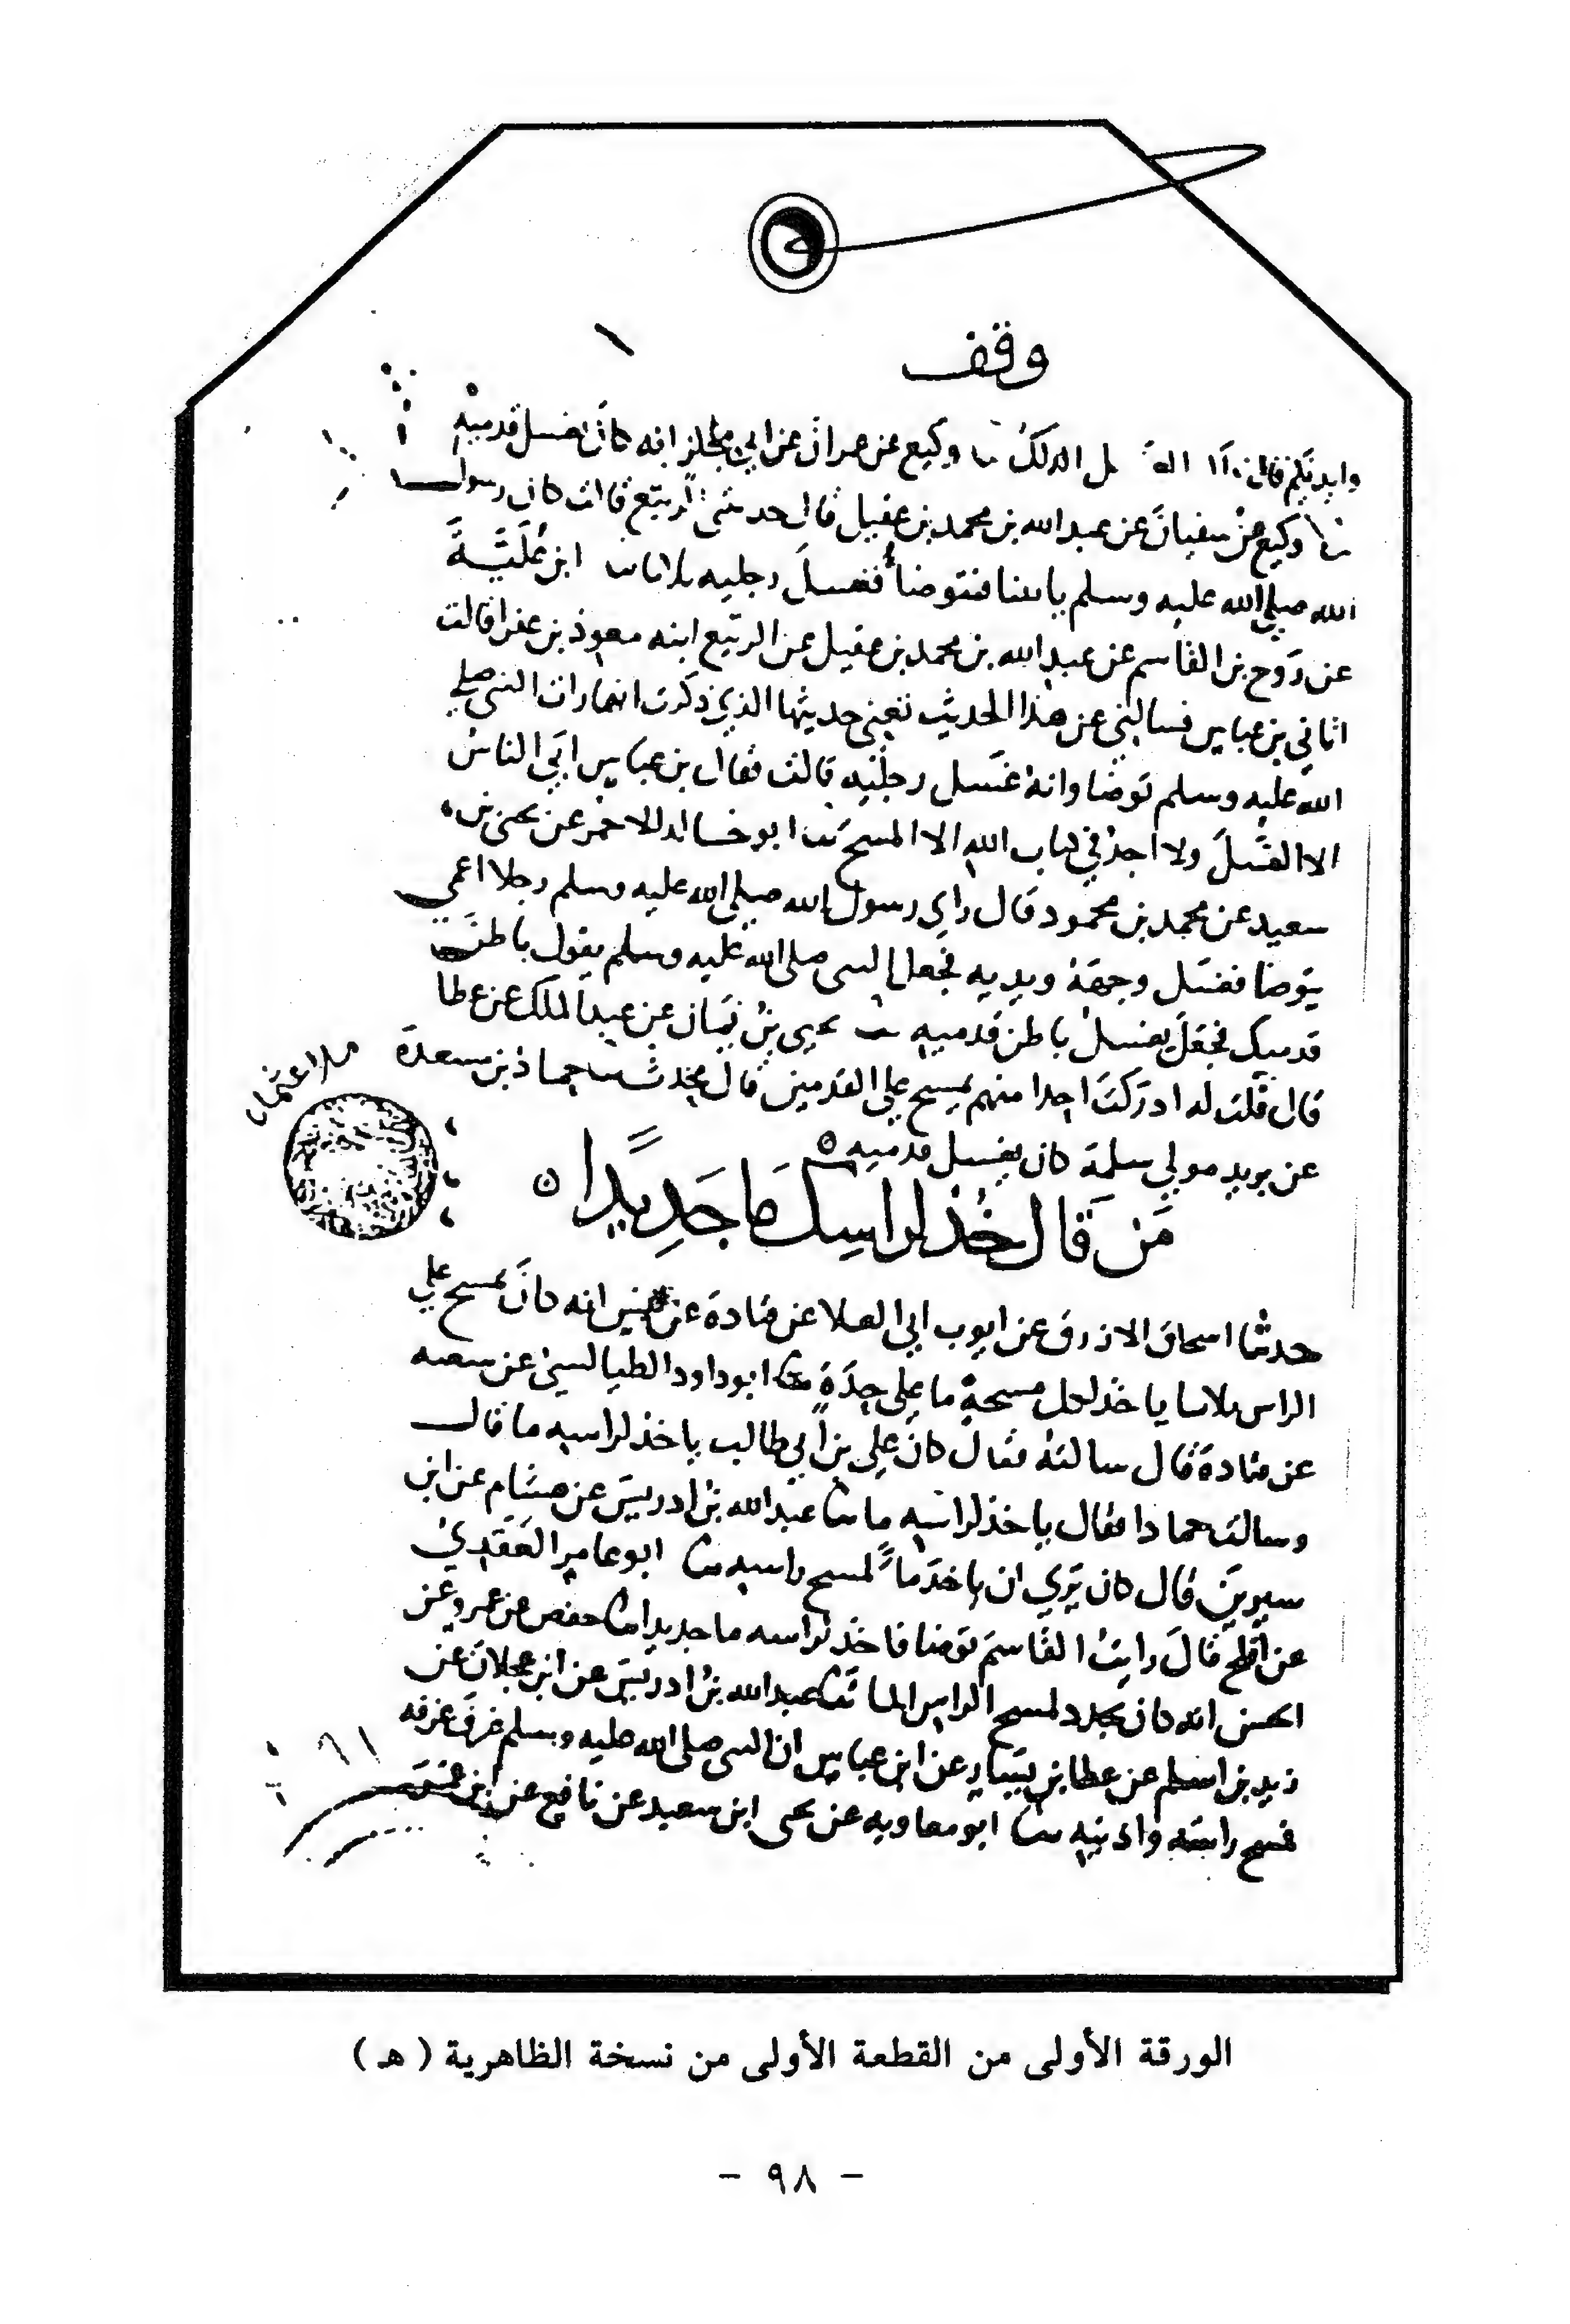 وقف
وايديكم قال الدلك وكيع عن عمران عن ابي مجلز انه كان يغسل قدميه
وكيع عن سفيان عن عبد الله بن محمد بن عقيل قال حدثتني الربيع قالت كان رسول
الله صلي الله عليه وسلم ياتينا فتوضا فغسل رجليه ثلاثا ثنا ابن علية
عن روح بن القاسم عن عبد الله بن محمد بن عقيل عن الربيع ابنه معوذ بن عفرا قالت
اتاني بن عباس فسالني عن هذا الحديث تعني حديثها الذي ذكرت انها رات النبي صلي
الله عليه وسلم توضا وانه غسل رجليه قالت فقال بن عباس ابي الناس
الا الغسل ولا اجد في كتاب الله الا المسح ثنا ابو خالد الاحمر عن يحيى بن
سعيد عن محمد بن محمود قال راي رسول الله صلي الله عليه وسلم رجلا اعمي
يتوضا فغسل وجهه ويديه فجعل النبي صلي الله عليه وسلم يقول باطن
قدميك فجعل يغسل باطن قدميه ثنا يحيي بن يمان عن عبد الملك عن عطا
قال قلت له ادركت احدا منهم يمسح علي القدمين قال محدث ثنا حماد بن مسعدة
عن يزيد مولي سلمة كان يغسل قدميه
من قال خذ لراسك ما جديدا
حدثنا اسحاق الازرق عن ايوب ابي العلا عن قتادة عن انس انه كان يمسح علي
الراس ثلاثا ياخذ لكل مسحة ما على حدة ثنا ابو داود الطيالسي عن شعبه
عن قتادة قال سالته فقال كان علي بن ابي طالب ياخذ لراسه ما قال
وسالت حمادا فقال ياخذ لراسه ما ثنا عبد الله بن ادريس عن هشام عن ابن
سيرين قال كان يري ان ياخذ ما لمسح راسه ثنا ابو عامر العقدي
عن افلح قال رايت القاسم توضا فاخذ لراسه ما جديدا ثنا حفص عن عمرو عن
الحسن انه كان يجدد لمسح الراس الما ثنا عبد الله بن ادريس عن ابن عجلان عن
زيد بن اسلم عن عطا بن يسار عن ابن عباس ان النبي صلى الله عليه وسلم غرف غرفه
فمسح راسه واذنيه ثنا ابو معاويه عن يحى ابن سعيد عن نافع عن ابن عمر
الورقة الأولى من القطعة الأولى من نسخة الظاهرية ( هـ )
- ٩٨ -